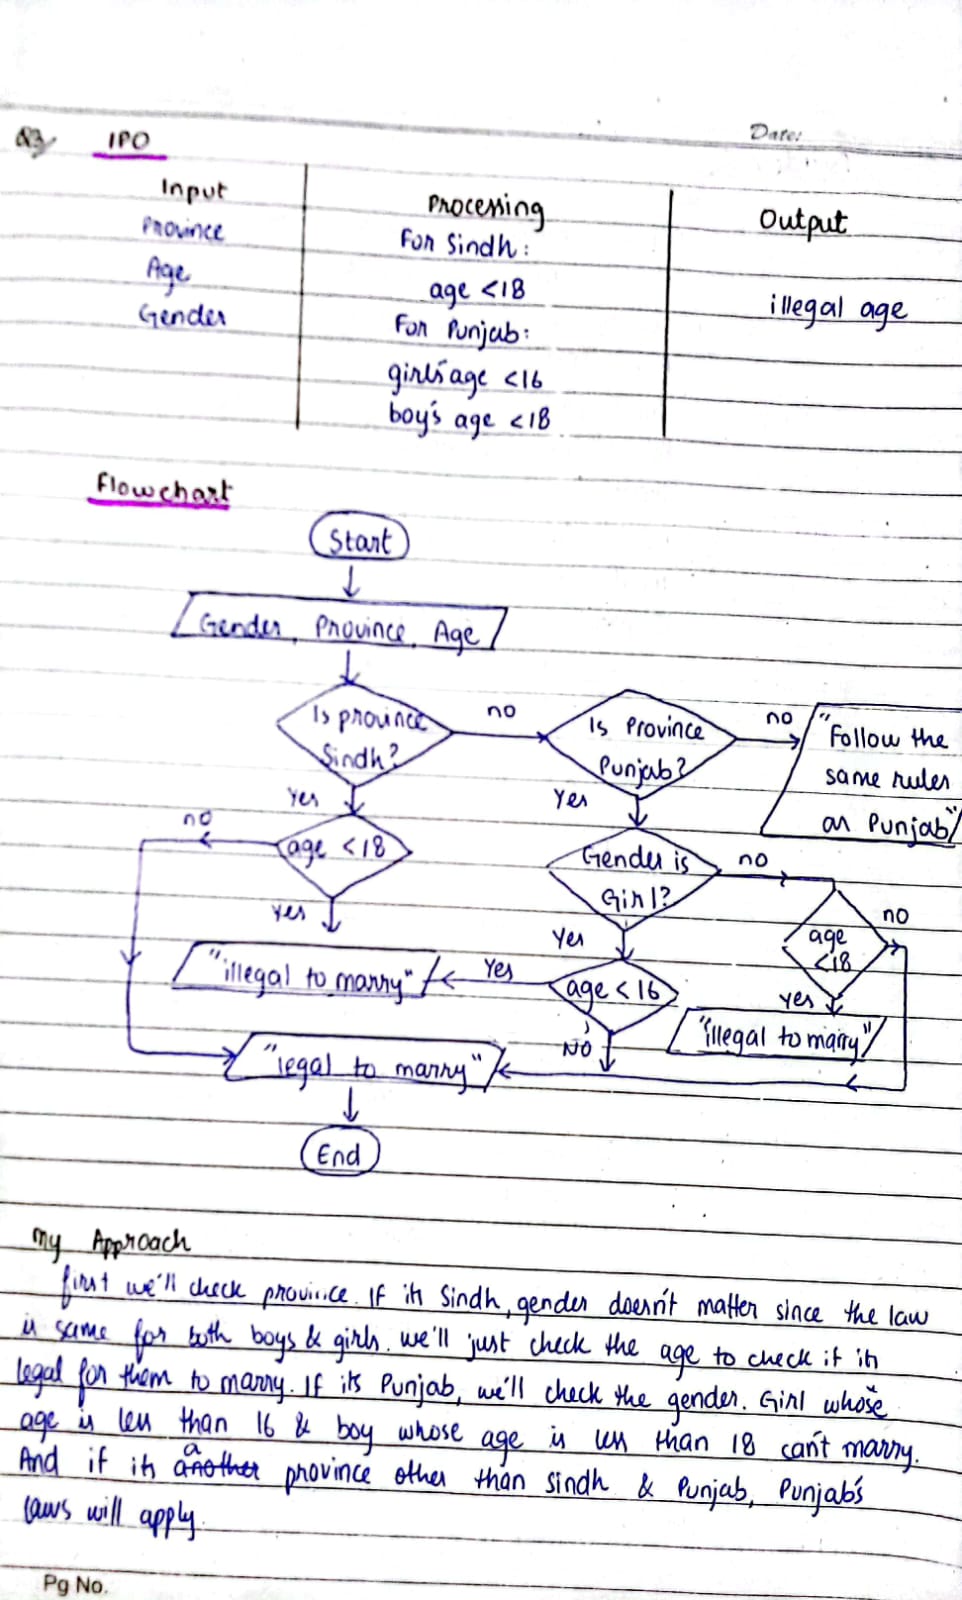 Date:
Q3/ IPO
Input
Processing
Output
Province
For Sindh:
Age
age <18
illegal age
Gender
For Punjab:
girl's age <16
boy's age <18
Flowchart
Start
Gender, Province, Age
Is province
Sindh?
no
Is Province
Punjab?
no
"Follow the
same rules
as Punjab"
Yes
Yes
no
age <18
Gender is
Girl?
no
age
<18
no
Yes
Yes
"illegal to marry"
Yes
age < 16
yes
"illegal to marry"
NO
"legal to marry"
End
My Approach
first we'll check province. If its Sindh, gender doesn't matter since the law
is same for both boys & girls. we'll just check the age to check if its
legal for them to marry. If its Punjab, we'll check the gender. Girl whose
age is less than 16 & boy whose age is less than 18 can't marry.
And if its a another province other than Sindh & Punjab, Punjab's
laws will apply.
Pg No.